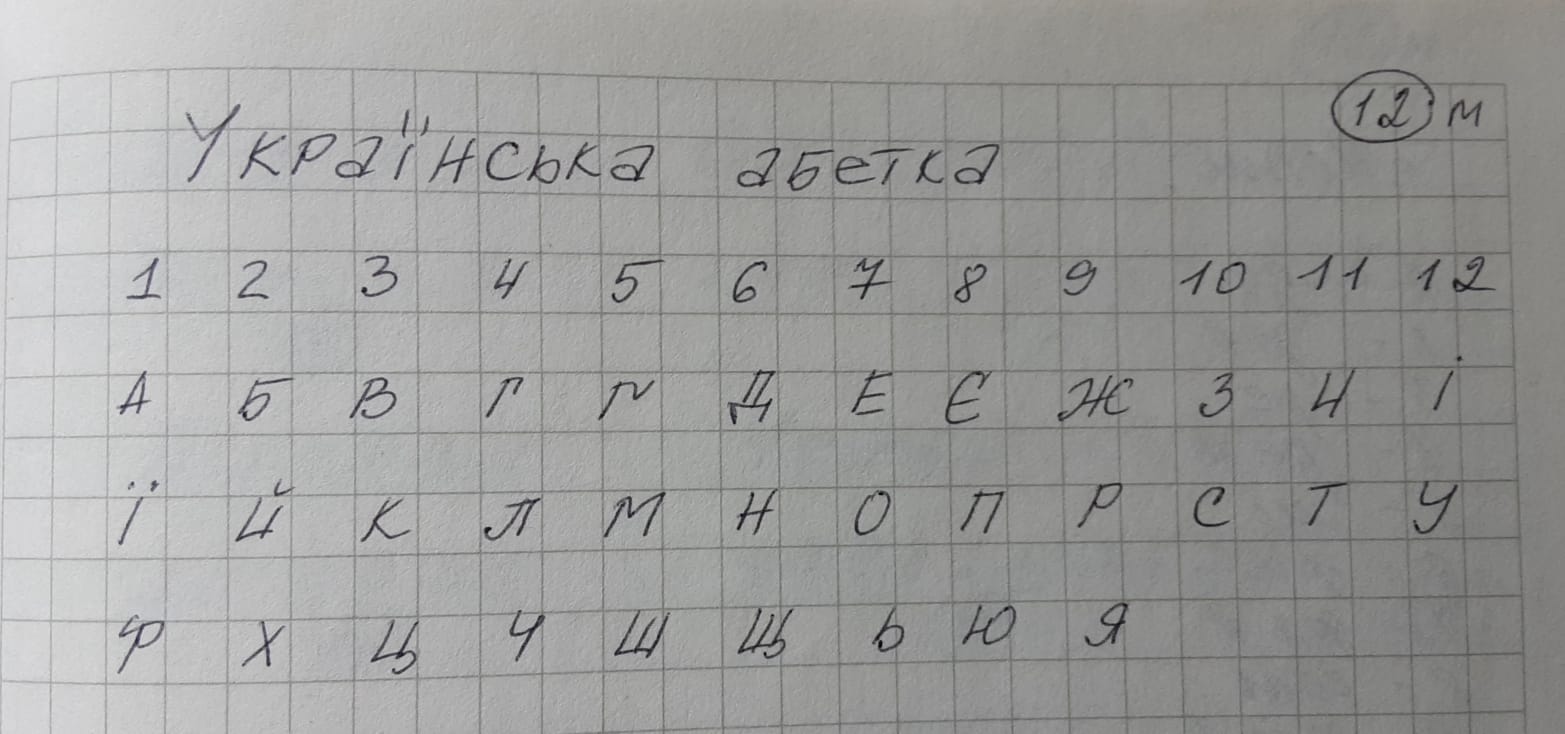 12 м
Українська абетка
1 2 3 4 5 6 7 8 9 10 11 12
А Б В Г Ґ Д Е Є Ж З И І
Ї Й К Л М Н О П Р С Т У
Ф Х Ц Ч Ш Щ Ь Ю Я